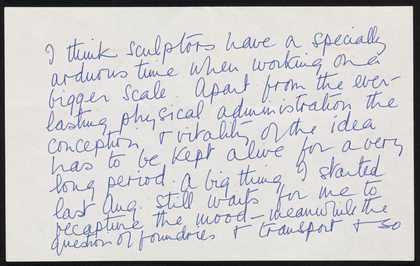 I think sculptors have a specially
arduous time when working on a
bigger scale. Apart from the ever-
lasting physical administration the
conception & vitality of the idea
has to be kept alive for a very
long period. A big thing I started
last Aug. still waits for me to
recapture the mood – meanwhile the
question of foundries & transport & so